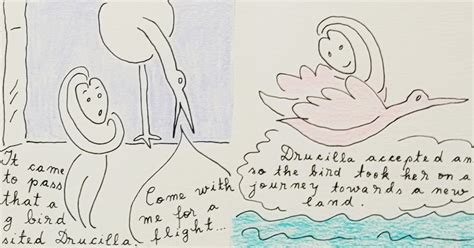 It came
to pass
that a
g bird
sited Drucilla.
Come with
me for a
flight...
Drucilla accepted an
so the bird took her on a
journey towards a new
land.